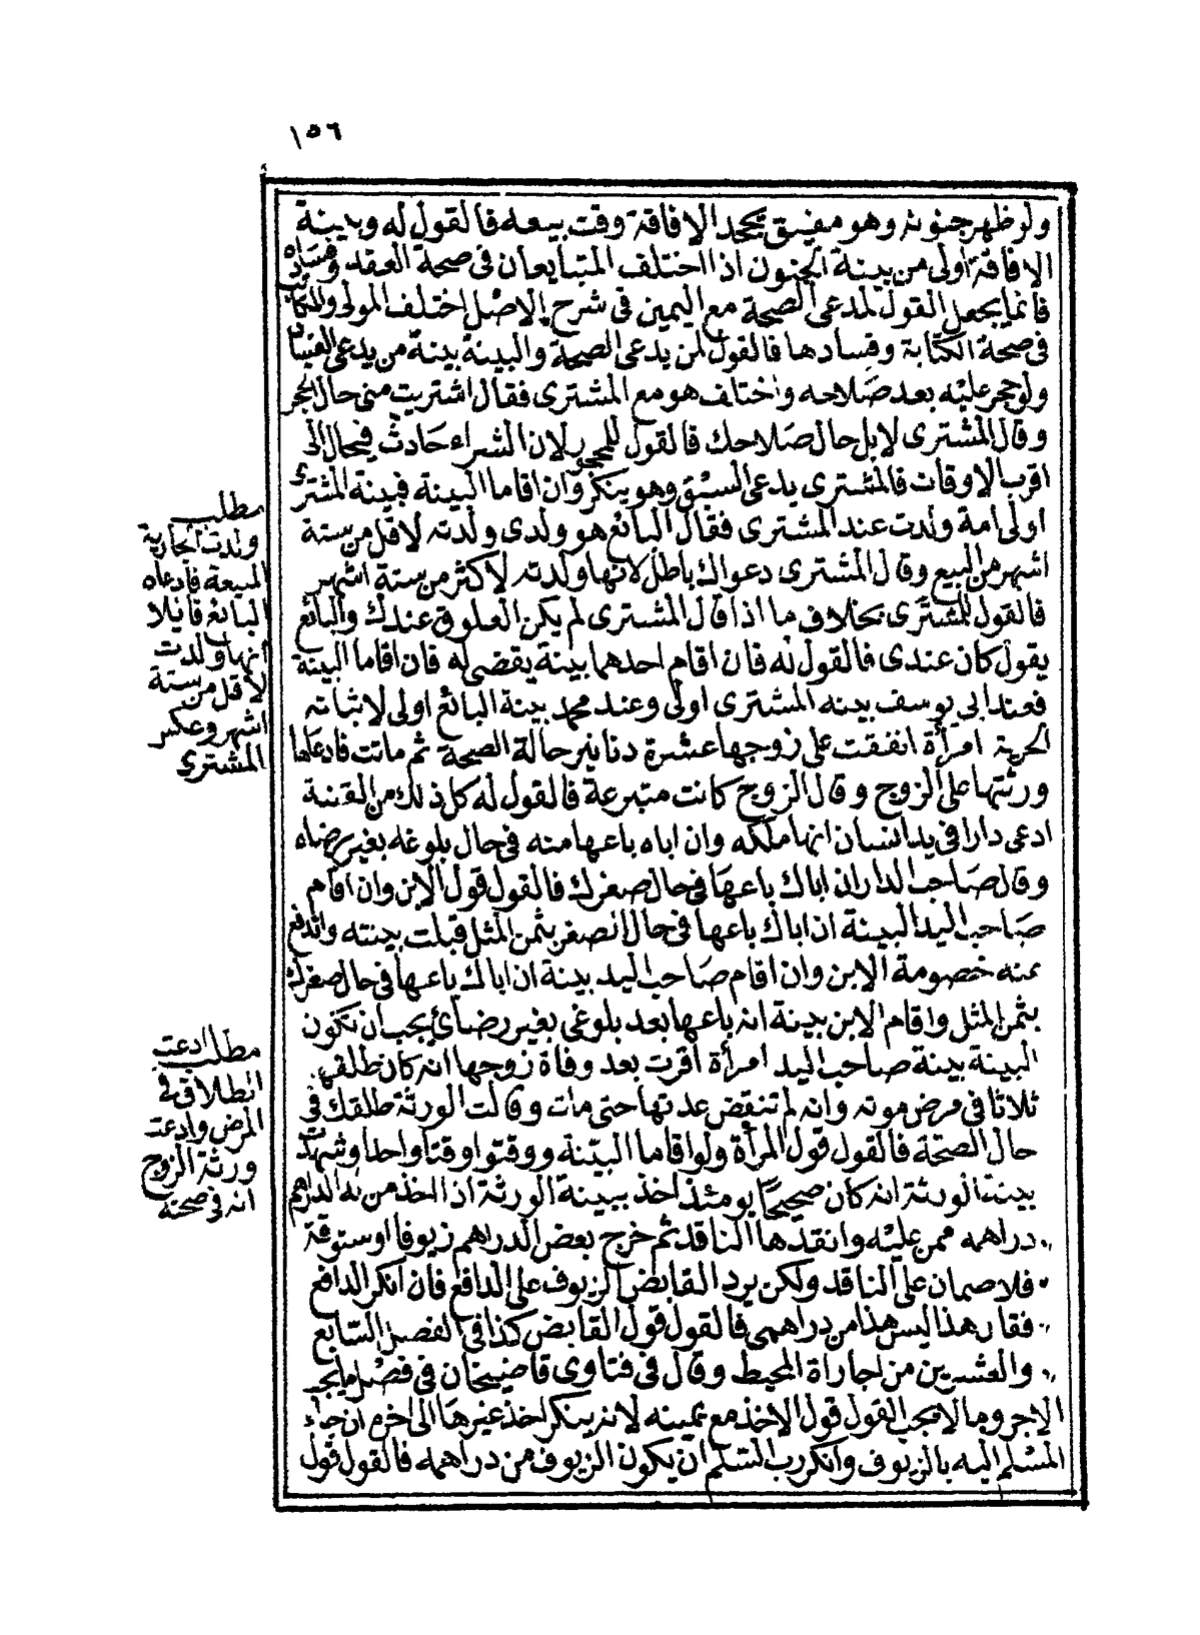 ١٥٦
ولو ظهر جنونه وهو مفيق يجحد الافاقة وقت بيعه فالقول له وبينة
الافاقة اولى من بينة الجنون اذا اختلف المتبايعان فى صحة العقد وفساده
فانما يجعل القول لمدعى الصحة مع اليمين فى شرح الاصل اختلف المولى والمكاتب
فى صحة الكتابة وفسادها فالقول لمن يدعى الصحة والبينة بينة من يدعى الفساد
ولو حجر عليه بعد صلاحه واختلف هو مع المشترى فقال اشتريت منى حال الحجر
وقال المشترى لا بل حال صلاحك فالقول للمحجور لان الشراء حادث فيحال الى
اقرب الاوقات فالمشترى يدعى السبق وهو ينكر وان اقاما البينة فبينة المشترى
اولى امة ولدت عند المشترى فقال البائع هو ولدى ولدته لاقل من ستة
اشهر من البيع وقال المشترى دعواك باطل لانها ولدته لاكثر من ستة اشهر
فالقول للمشترى بخلاف ما اذا قال المشترى لم يكن العلوق عندك والبائع
يقول كان عندى فالقول له فان اقام احدهما بينة يقضى له فان اقاما البينة
فعند ابي يوسف بينه المشترى اولى وعند محمد بينة البائع اولى لاثباته
الحرية امرأة انفقت على زوجها عشرة دنانير حالة الصحة ثم ماتت فادعاها
ورثتها على الزوج وقال الزوج كانت متبرعة فالقول له كل ذلك من القنية
ادعى دارا فى يد انسان انها ملكه وان اباه باعها منه فى حال بلوغه بغير رضاه
وقال صاحب الدار ان اباك باعها فى حال صغرك فالقول قول الابن وان اقام
صاحب اليد البينة ان اباك باعها فى حال الصغر بثمن المثل قبلت بينته واندفع
عنه خصومة الابن وان اقام صاحب اليد بينة ان اباك باعها فى حال صغرك
بثمن المثل واقام الابن بينة انه باعها بعد بلوغى بغير رضائ يجب ان تكون
البينة بينة صاحب اليد امرأة اقرت بعد وفاة زوجها انه كان طلقها
ثلاثا فى مرض موته وانه لم تنقض عدتها حتى مات وقالت الورثة طلقك فى
حال الصحة فالقول قول المرأة ولو اقاما البينة ووقتوا وقتا واحدا وشهدت
بينة الورثة انه كان صحيحا يومئذ اخذ ببينة الورثة اذا اخذ من له الدراهم
دراهمه ممن عليه وانقدها الناقد ثم خرج بعض الدراهم زيوفا او ستوقة
فلا ضمان على الناقد ولكن يرد القابض الزيوف على الدافع فان انكر الدافع
فقال هذا ليس هذا من دراهمى فالقول قول القابض كذا فى الفصل السابع
والعشرين من اجاراة المحيط وقال فى فتاوى قاضيخان فى فصل ما يجب
الاجر وما لا يجب القول قول الاخذ مع يمينه لانه ينكر اخذ غيرها الى اخره ان جاء
المسلم اليه بالزيوف وانكر رب السلم ان يكون الزيوف من دراهمه فالقول قول
مطلب
ولدت الجارية
المبيعة فادعاه
البائع قايلا
انها ولدت
لاقل من ستة
اشهر وعكس
المشترى
مطلب ادعت
الطلاق فى
المرض وادعت
ورثة الزوج
انه فى صحته